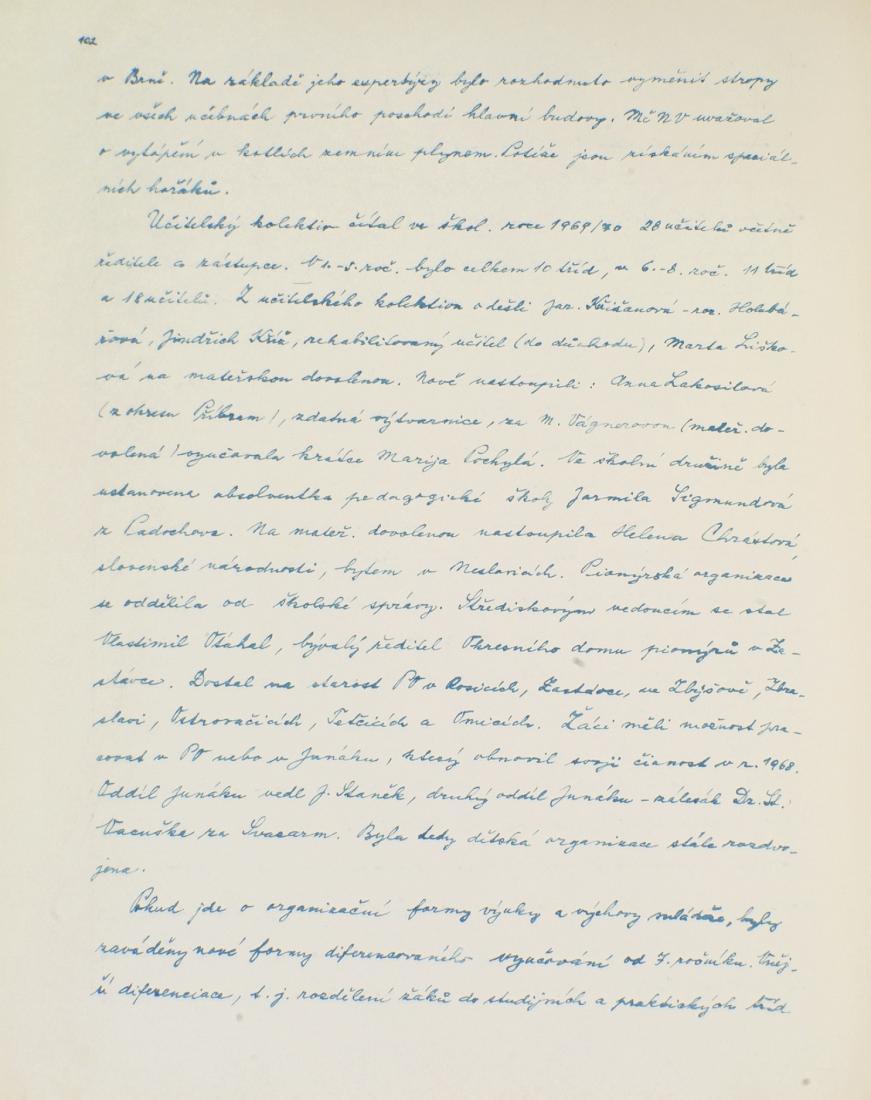 102
v Brně. Na základě jeho expertýzy bylo rozhodnuto vyměnit stropy
ve všech učebnách prvního poschodí hlavní budovy. MěNV uvažoval
o vytápění v kotlích zemním plynem. Potíže jsou získáním speciál-
ních hořáků.
Učitelský kolektiv čítal ve škol. roce 1969/70 28 učitelů včetně
ředitele a zástupce. V 1.-5. roč. bylo celkem 10 tříd, v 6.-8. roč. 11 tříd
a 18 učitelů. Z učitelského kolektivu odešli Jar. Křišanová - roz. Holubá-
řová, Jindřich Kříž, rehabilitovaný učitel (do důchodu), Marta Liško-
vá na mateřskou dovolenou. Nově nastoupili: Anna Lakosilová
(z okresu Příbram), zdatná výtvarnice, za M. Vágnerovou (mateř. do-
volená) vyučovala krátce Marija Pochylá. Ve školní družině byla
ustanovena absolventka pedagogické školy Jarmila Sigmundová
z Padochova. Na mateř. dovolenou nastoupila Helena Chrástová,
slovenské národnosti, bytem v Neslovicích. Pionýrská organizace
se oddělila od školské správy. Střediskovým vedoucím se stal
Vlastimil Otáhal, bývalý ředitel Okresního domu pionýrů v Za-
stávce. Dostal na starost PO v Rosicích, Zastávce, ve Zbýšově, Zbra-
slavi, Ostrovačicích, Tetčicích a Omicích. Žáci měli možnost pra-
covat v PO nebo v Junáku, který obnovil svoji čianost v r. 1968.
Oddíl Junáku vedl J. Staněk, druhý oddíl Junáku - zálesák Dr. St.
Vacuška za Svazarm. Byla tedy dětská organizace stále rozdvo-
jena.
Pokud jde o organizační formy výuky a výchovy mládeže, byly
zaváděny nové formy diferencovaného vyučování od 7. ročníku. Vněj-
ší diferenciace, t. j. rozdělení žáků do studijních a praktických tříd